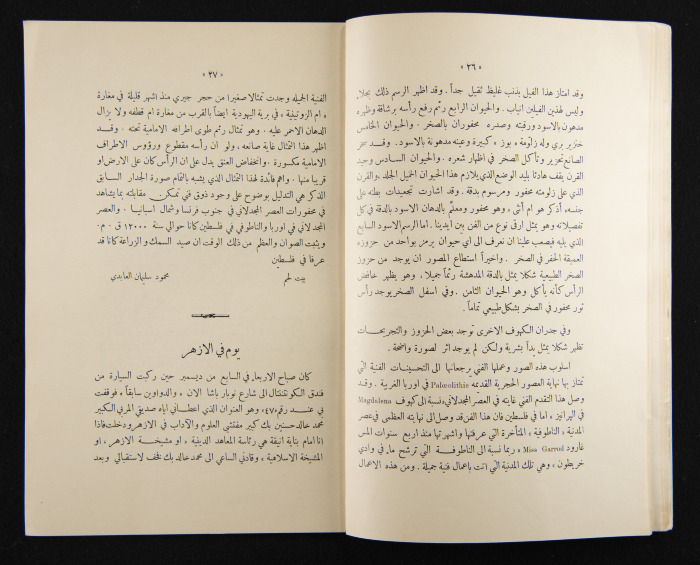 «٣٦»
وقد امتاز هذا الفيل بذنب غليظ ثقيل جداً . وقد اظهر الرسم ذلك بجلاء
وليس لهذين الفيلين انياب . والحيوان الرابع رئم رفع رأسه برشاقة وظهره
مدهون بالاسود ورقبته وصدره محفوران بالصخر . والحيوان الخامس
خنزير بري وله زلومة « بوز » كبيرة وعينه مدهونة بالاسود . وقد
الصانع تحزيز وتأكل الصخر في اظهار شعره . والحيوان السادس وحيد
القرن يقف هادئا بليد الوضع الذي يلازم هذا الحيوان الجميل الجلد والقرن
الذي على زلومته محفور ومرسوم بدقة . وقد اشارت تجعيدات بطنه على
جنسه، أذكر هو ام أنثى، وهو محفور ومعلّم بالدهان الاسود بالدقة في كل
تفصيلاته وهو يمثل ارقى نوع من الفن بين ايدينا. اما الرسم الاسود السابع
الذي يليه فيصعب علينا ان نعرف الى اي حيوان يرمز بواحد من حزوزه
العميقة الحفر في الصخر . واخيراً استطاع المصور ان يوجد من حزوز
الصخر الطبيعية شكلا يمثل بالدقة المدهشة رئماً جميلا، وهو يظهر خافض
الرأس كأنه يأكل وهو الحيوان الثامن . وفي اسفل الصخر يوجد رأس
ثور محفور في الصخر بشكل طبيعي تماماً .
وفي جدران الكهوف الاخرى توجد بعض الحزوز والتجريحات
تظهر شكلا يمثل بدأ بشرية ولكن لم يوجد اثر لصورة واضحة .
اسلوب هذه الصور وعملها الفني يرجعانها الى التحسينات الفنية التي
تمتاز بها نهاية العصور الحجرية القديمه Palæolithic في اوربا الغربية . وقد
وصل هذا التقدم الفني غايته في العصر المجدلاني، نسبة الى كهوف Magdalena
في البرانيز، اما في فلسطين فان هذا الفن قد وصل الى نهايته العظمى في عصر
المدنية « الناطوفية » المتأخرة التي عرفتها واشهرتها منذ اربع سنوات المس
غارود Miss Garrod « ربما نسبة الى الناطوفـة التي ترشح ماء في وادي
خريطون » وهي تلك المدنية التي اتت باعمال فنية جميلة . ومن هذه الاعمال
«٣٧»
الفنية الجميله وجدت تمثالا صغيرا من حجر جيري منذ اشهر قليلة في مغارة
« ام الزويتينة » في برية اليهودية ايضاً بالقرب من مغارة ام قطفه ولا يزال
الدهان الاحمر عليه . وهو تمثال رئم طوى اطرافه الامامية تحته . وقـد
اظهر هذا التمثال غاية صانعه، ولو ان رأسه مقطوع ورؤوس الاطراف
الامامية مكسورة . وانخفاض العنق يدل على ان الرأس كان على الارض او
قريبا منها . واهم فائدة لهذا التمثال الذي يشبه بالتمام صورة الجدار السابق
الذكر هي التدليل بوضوح على وجود ذوق فني تمكن مقابلته بما يشاهد
في محفورات العصر المجدلاني في جنوب فرنسا وشمال اسبانيا . والعصر
المجدلاني في اوربا والناطوفي في فلسطين كانا حوالي سنة ١٢٠٠٠ ق . م .
ويثبت الصوان والعظم من ذلك الوقت ان صيد السمك والزراعة كانا قد
عرفا في فلسطين
بيت لحم محمود سليمان العابدي
يوم في الازهر
كان صباح الاربعاء في السابع من ديسمبر حين ركبت السيارة من
فندق الكونتننتال الى شارع نوبار باشا الان ، والدواوين سابقاً ، فوقفت
في عند رقم ٤٧، وهو العنوان الذي اعطاني اياه صديقي المربي الكبير
محمد خالد حسنين بك كبير مفتشي العلوم والآداب في الازهر ودخلت فاذا
انا امام بناية انيقة هي رئاسة المعاهد الدينية ، او مشيخـة الازهر ، او
المشيخة الاسلامية ، وقادني الساعي الى محمد خالد بك فخف لاستقبالي وبعد